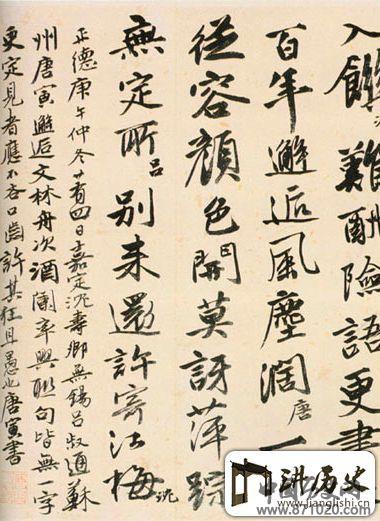 入饌難酬險語更書
百年邂逅風塵闊唐一
從容顏色開莫訝萍踪
無定所呂別來還許寄江梅沈
正德庚午仲冬廿有四日嘉定沈壽卿無錫呂叔通蘇
州唐寅邂逅文林舟次酒闌率興聯句皆無一字
更定見者應不吝口齒許其狂且愚也唐寅書
讲历史
www.jianglishi.cn
www.871020.com